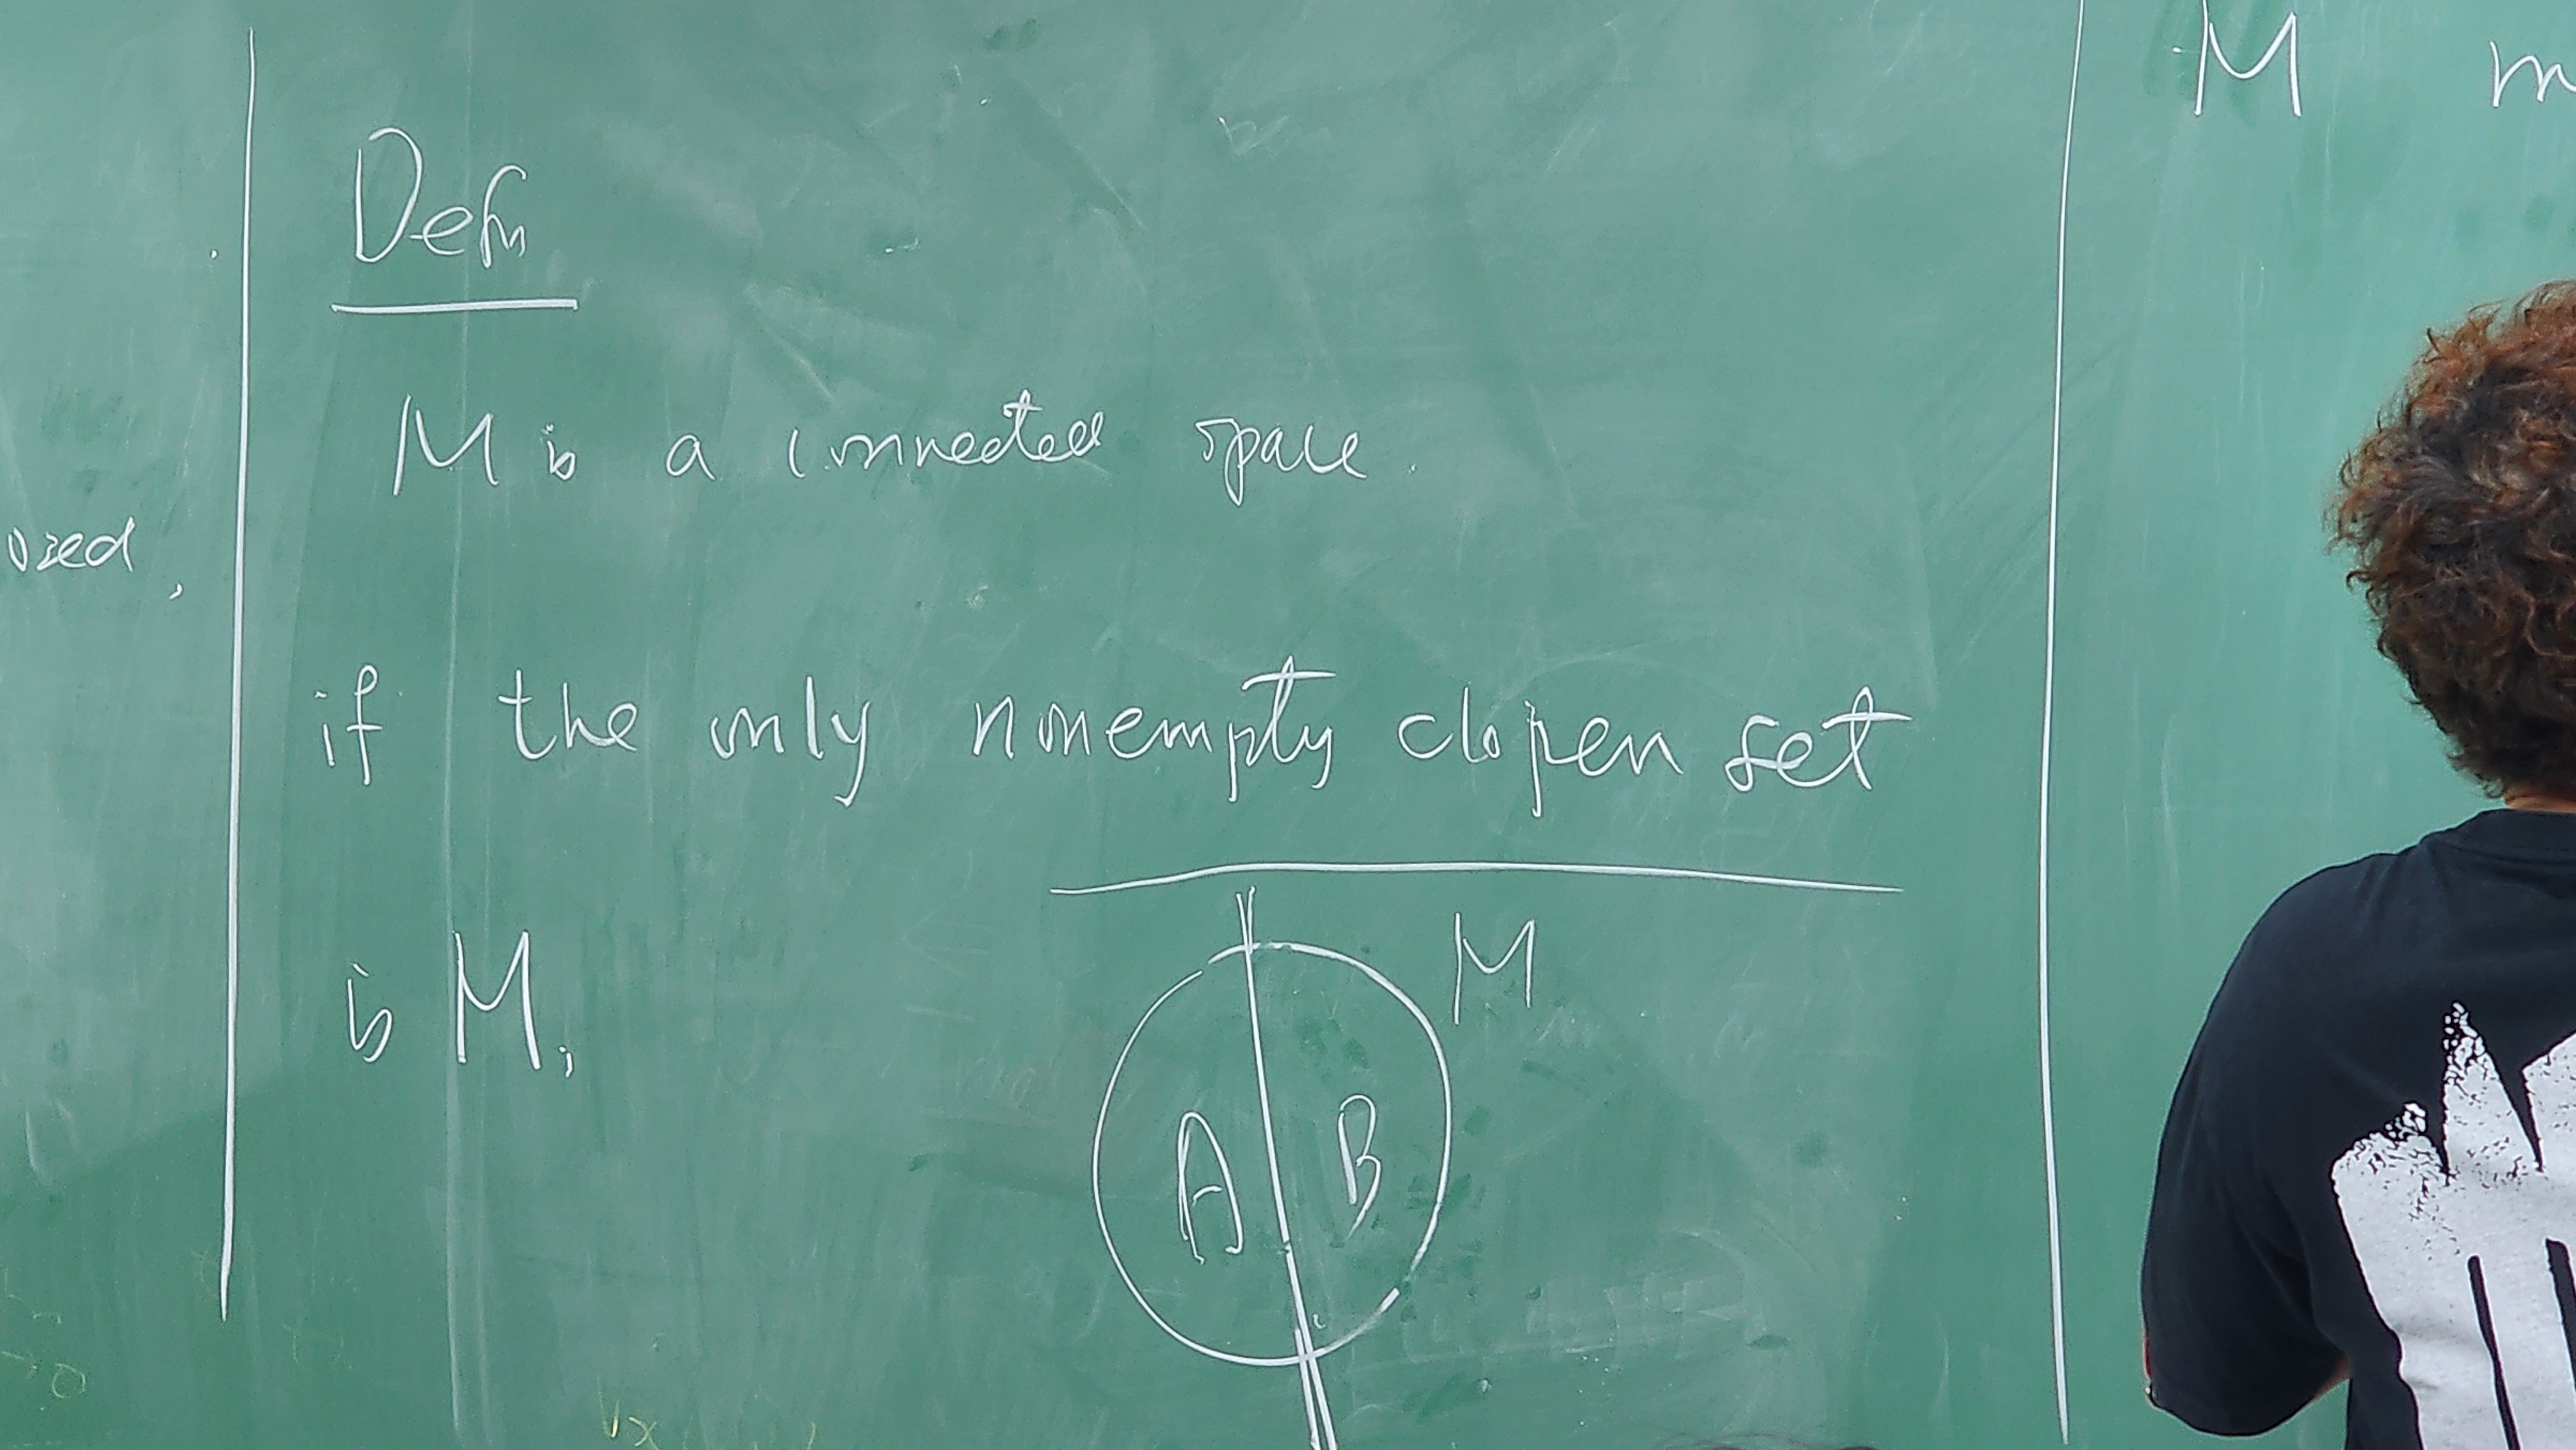 Defn
M is a connected space.
if the only nonempty clopen set
is M.
M
A B
M